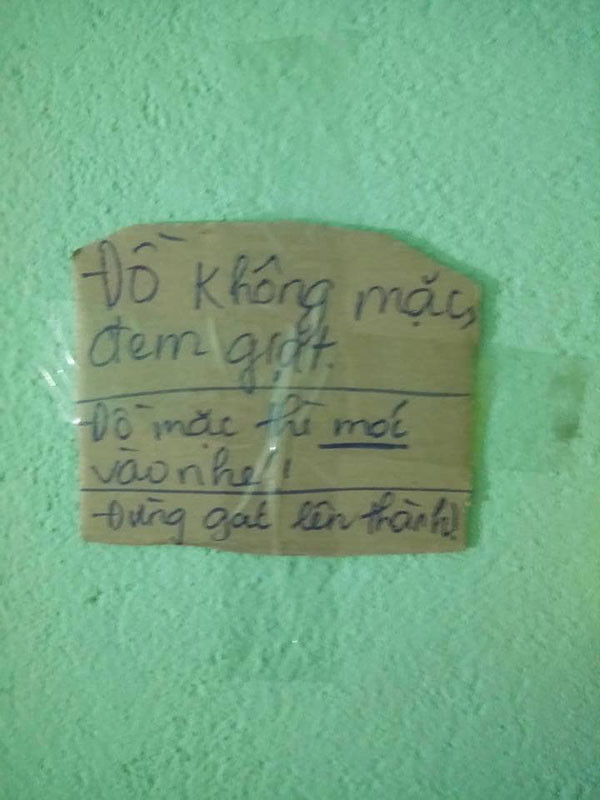 Đồ không mặc,
đem giặt.
Đồ mặc thì móc
vào nhé!
Đừng gat lên thành!